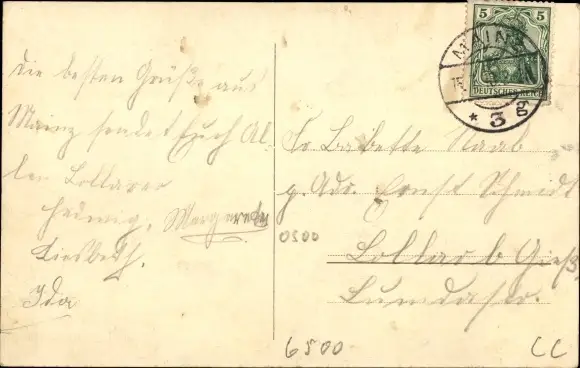 Die besten Grüße aus
Mainz sendet Euch Al-
len Lollarer
Hedwig, Margarete
Liesbeth,
Ida
5 5
MAINZ
DEUTSCHES REICH
* 3 g
Fr. Babette Raab
p. Adr. Ernst Schmidt
0500
Lollar b Gieß.
Lumdastr.
6500
CC